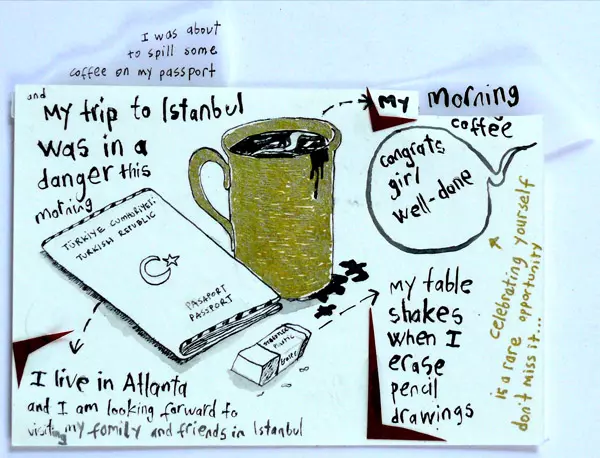 I was about
to spill some
coffee on my passport
and
My trip to Istanbul
was in a
danger this
morning
My morning
coffee
congrats
girl
well-done
celebrating yourself
is a rare opportunity
don't miss it...
TÜRKİYE CUMHURİYETİ
TURKISH REPUBLIC
PASAPORT
PASSPORT
my table
shakes
when I
erase
pencil
drawings
I live in Atlanta
and I am looking forward to
visiting my family and friends in Istanbul